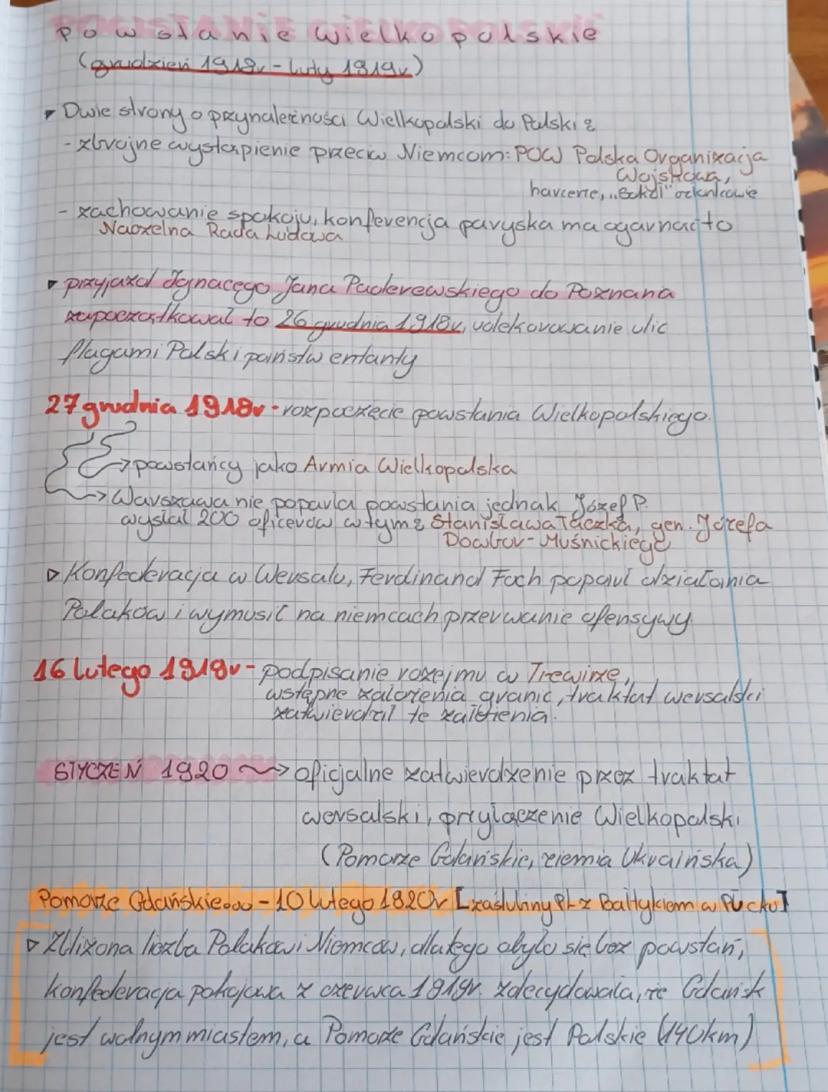 Powstanie Wielkopolskie
(grudzień 1918r - luty 1919r)
Dwie strony o przynależności Wielkopolski do Polski:
- zbrojne wystąpienie przeciw Niemcom: POW Polska Organizacja
Wojskowa,
harcerze, "Sokół" członkowie
- zachowanie spokoju, konferencja paryska ma ogarnąć to
Naczelna Rada Ludowa
przyjazd Ignacego Jana Paderewskiego do Poznana
zapoczątkował to 26 grudnia 1918r, udekorowanie ulic
flagami Polski i państw ententy
27 grudnia 1918r - rozpoczęcie powstania Wielkopolskiego.
→ powstańcy jako Armia Wielkopolska
→ Warszawa nie poparła powstania jednak Józef P.
wysłał 200 oficerów w tym: Stanisława Taczka, gen. Józefa
Dowbor-Muśnickiego
Konfederacja w Wersalu, Ferdinand Foch poparł działania
Polaków i wymusił na niemcach przerwanie ofensywy.
16 lutego 1919r - podpisanie rozejmu w Trewirze,
wstępne założenia granic, traktat wersalski
zatwierdził te założenia.
STYCZEŃ 1920 → oficjalne zatwierdzenie przez traktat
wersalski, przyłączenie Wielkopolski
(Pomorze Gdańskie, ziemia Ukraińska)
Pomorze Gdańskie - 10 lutego 1920r [zaślubiny PL z Bałtykiem w Pucku]
Zbliżona liczba Polaków i Niemców, dlatego obyło się bez powstań,
konfederacja pokojowa z czerwca 1919r. zdecydowała, że Gdańsk
jest wolnym miastem, a Pomorze Gdańskie jest Polskie (140km)